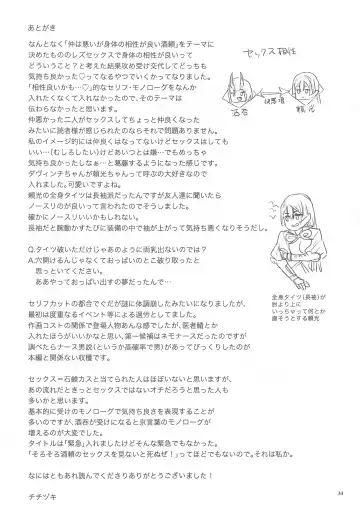 あとがき
なんとなく「仲は悪いが身体の相性が良い酒頼」をテーマに
決めたもののレズセックスで身体の相性が良いって
どういうこと?と考えた結果攻め受け交代してどっちも
気持ち良かった♡ってなるやつでいくかってなりました。
「相性良いかも…♡」的なセリフ・モノローグをなんか
入れたくなくて入れなかったので、そのテーマは
伝わらなかったと思います。
仲悪かった二人がセックスしてちょっと仲良くなった
みたいに読者様が感じられたのならそれで問題ありません。
私のイメージ的には仲良くはなってないけどセックスはしても
いい…(むしろしたい)けどあいつとは嫌…でもめっちゃ
気持ち良かったしなぁ…と葛藤するようになった感じです。
ダヴィンチちゃんが頼光ちゃんって呼ぶの大好きなので
入れました。可愛いですよね。
頼光の全身タイツは長袖派だったんですが友人達に聞いたら
ノースリのが良いって言われたのでそうしました。
確かにノースリいいかもしれない。
長袖だと腕動かすたびに装備の中で袖が上がって気持ち悪くなりそうだし。
Q.タイツ破いただけじゃあのように尚乳出ないのでは?
A.穴開けるんじゃなくておっぱいのとこ破り取ったと
思っといてください。
ああやっておっぱい出すの夢だったんで…
セリフカットの都合でぐだが謎に体調崩したみたいになりましたが、
最初は度重なるイベント等による過労としてました。
作画コストの関係で登場人物あんな感じでしたが、医者鯖とか
入れたほうがいいかなと思い、第一候補はネモナースだったのですが
調べたらナース男説(というか高確率で男)があってびっくりしたのが
本編と関係ない収穫です。
セックス=石鹸カスと当てられた人はほぼいないと思いますが、
あの流れだときっとセックスではないオチだろうと思った人も
多いかと思います。
基本的に受けのモノローグで気持ち良さを表現することが
多いのですが、酒呑が受けになると京言葉のモノローグが
増えるのが大変でした。
タイトルは「緊急」入れましたけどそんな緊急でもなかった。
「そろそろ酒頼のセックスを見ないと死ぬぜ!」ってほどでもないので。それは私か。
なにはともあれ読んでくださりありがとうございました!
チチヅキ
セックス相性
酒呑
頼光
全身タイツ(長袖)が
肘より上に
いっちゃって何とか
直そうとする頼光